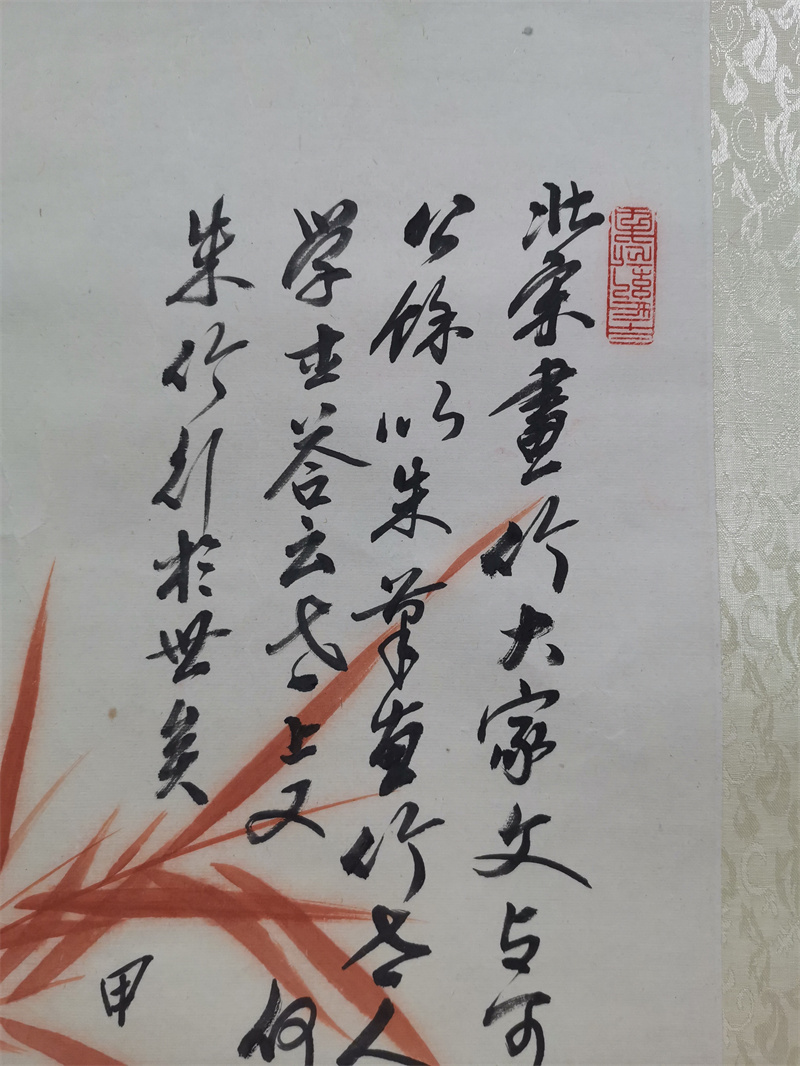 北宋畫竹大家文与可
公餘以朱筆畫竹世人
学士答云世上又何
朱竹行於世矣
甲